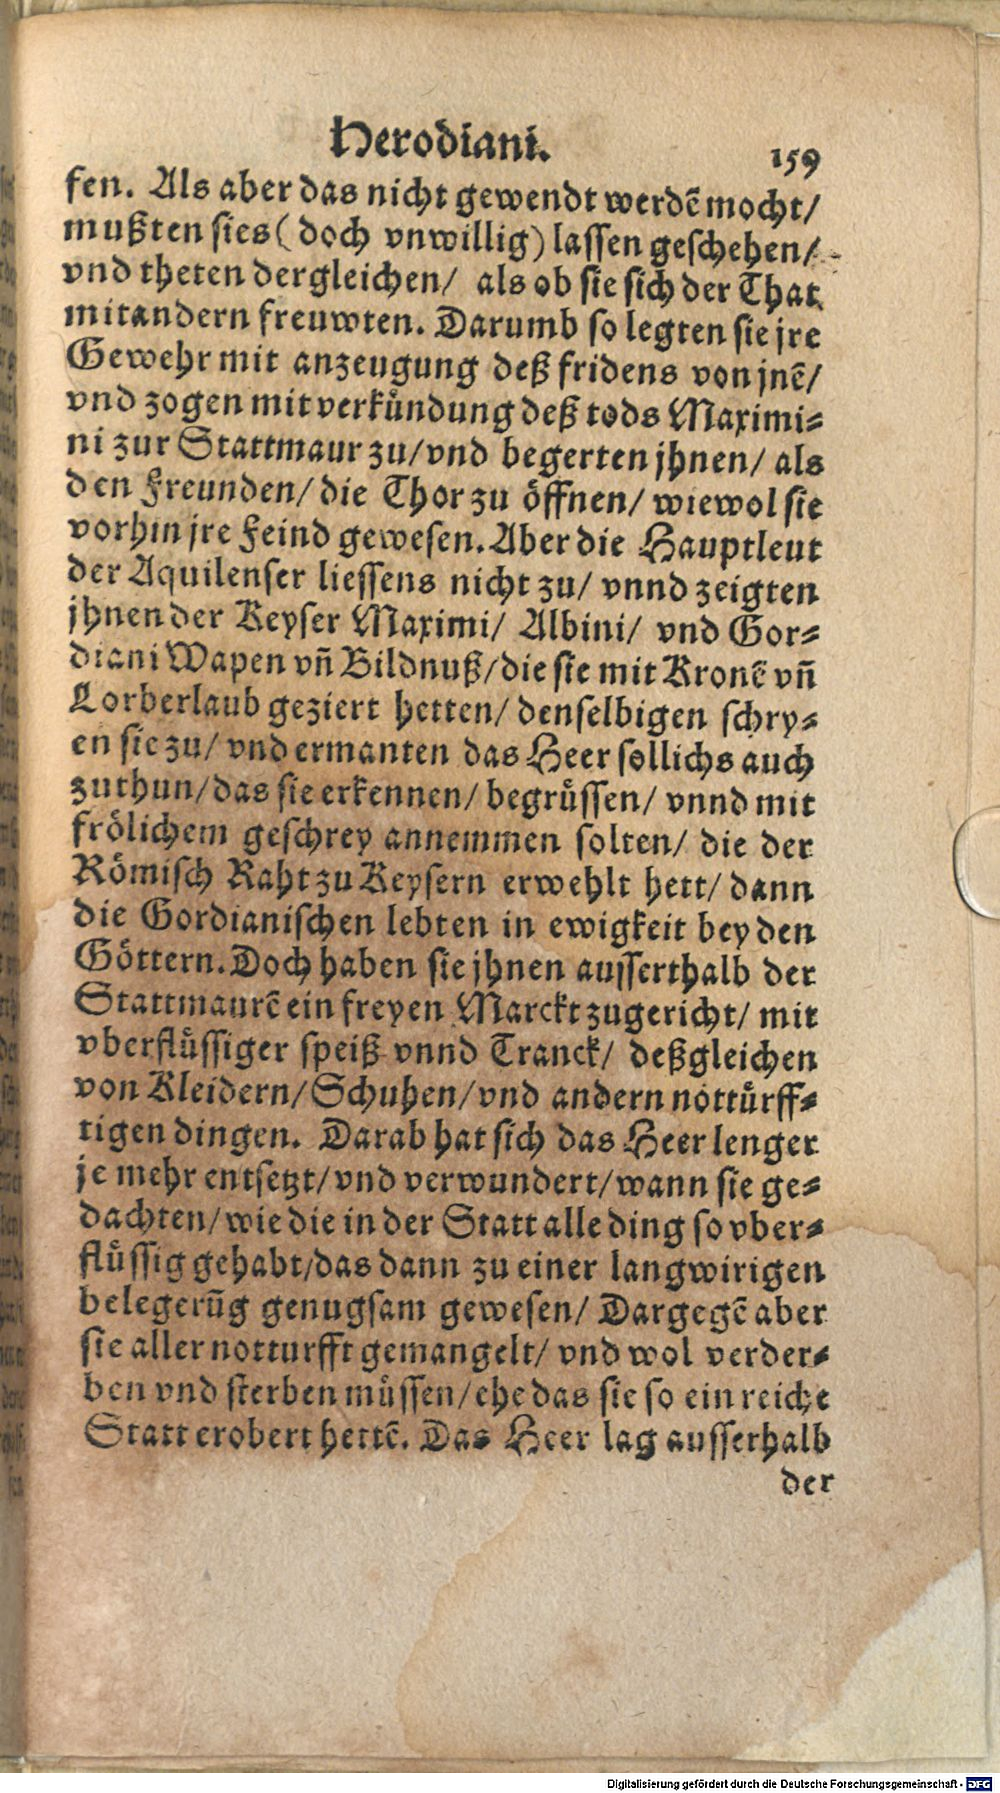 Herodiani. 159
fen. Als aber das nicht gewendt werdē mocht/
mußten sies (doch vnwillig) lassen geschehen/
vnd theten dergleichen/ als ob sie sich der That
mit andern freuwten. Darumb so legten sie jre
Gewehr mit anzeugung deß fridens von jnē/
vnd zogen mit verkündung deß tods Maximi-
ni zur Stattmaur zu/ vnd begerten jhnen/ als
den Freunden/ die Thor zu öffnen/ wiewol sie
vorhin jre Feind gewesen. Aber die Hauptleut
der Aquilenser liessens nicht zu/ vnnd zeigten
jhnen der Keyser Maximi/ Albini/ vnd Gor-
diani Wapen vñ Bildnuß/ die sie mit Kronē vñ
Lorberlaub geziert hetten/ denselbigen schry-
en sie zu/ vnd ermanten das Heer sollichs auch
zuthun/ das sie erkennen/ begrüssen/ vnnd mit
frölichem geschrey annemmen solten/ die der
Römisch Raht zu Keysern erwehlt hett/ dann
die Gordianischen lebten in ewigkeit bey den
Göttern. Doch haben sie jhnen ausserthalb der
Stattmaurē ein freyen Marckt zugericht/ mit
vberflüssiger speiß vnnd Tranck/ deßgleichen
von Kleidern/ Schuhen/ vnd andern nottürff-
tigen dingen. Darab hat sich das Heer lenger
je mehr entsetzt/ vnd verwundert/ wann sie ge-
dachten/ wie die in der Statt alle ding so vber-
flüssig gehabt/ das dann zu einer langwirigen
belegerūg genugsam gewesen/ Dargegē aber
sie aller notturfft gemangelt/ vnd wol verder-
ben vnd sterben müssen/ ehe das sie so ein reiche
Statt erobert hettē. Das Heer lag ausserhalb
der
Digitalisierung gefördert durch die Deutsche Forschungsgemeinschaft - DFG